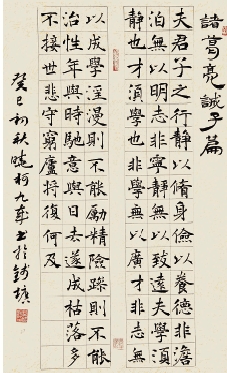 諸葛亮誡子篇
夫君子之行靜以脩身儉以養德非澹
泊無以明志非寧靜無以致遠夫學須
靜也才須學也非學無以廣才非志無
以成學淫漫則不能勵精險躁則不能
治性年與時馳意與日去遂成枯落多
不接世悲守窮廬將復何及
癸巳初秋曉柯書於錢塘